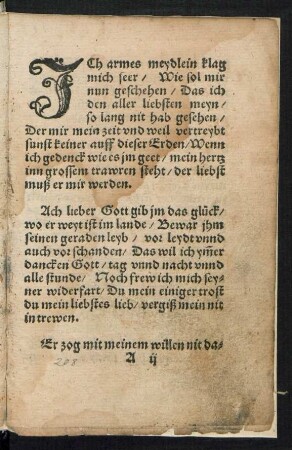 JCh armes meydlein klag
mich seer / Wie sol mir
nun geschehen / Das ich
den aller liebsten meyn /
so lang nit hab gesehen /
Der mir mein zeit vnd weil vertreybt
sunst keiner auff dieser Erden / Wenn
ich gedenck wie es jm geet / mein hertz
inn grossem trawren steht / der liebst
muß er mir werden.
Ach lieber Gott gib jm das glück /
wo er weyt ist im lande / Bewar jhm
seinen geraden leyb / vor leydt vnnd
auch vor schanden / Das wil ich ymer
dancken Gott / tag vnnd nacht vnnd
alle stunde / Noch frew ich mich sey-
ner widerfart / Du mein einiger trost
du mein liebstes lieb / vergiß mein nit
in trewen.
Er zog mit meinem willen nit da-
A ij